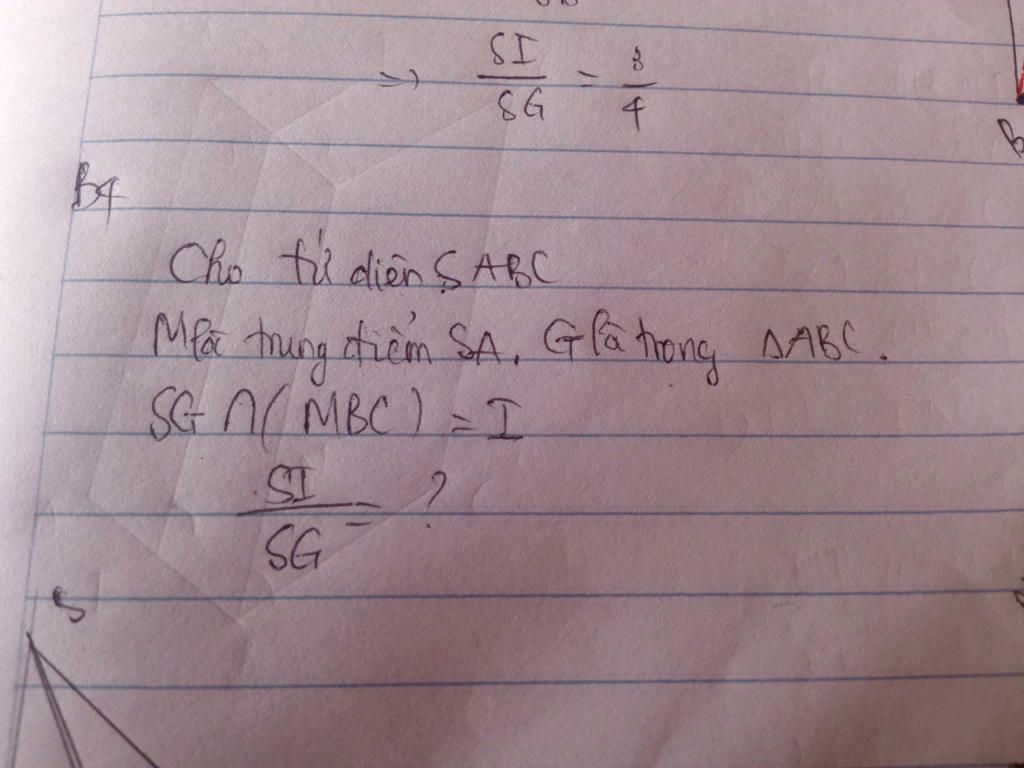 => SI/SG = 3/4
B4
Cho tứ diện SABC
M là trung điểm SA, G là trọng ΔABC.
SG ∩ (MBC) = I
SI/SG = ?
S